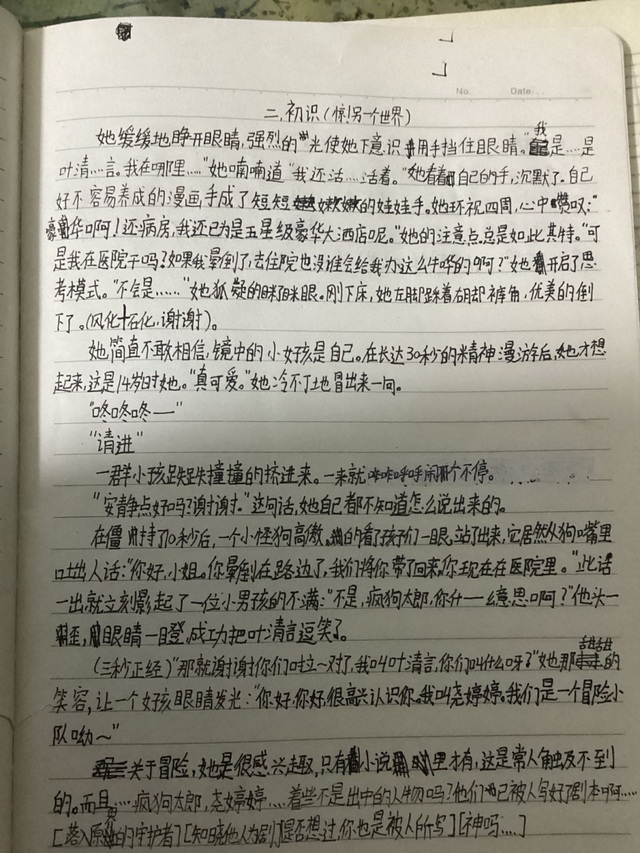 No. Date...
二.初识(惊!另一个世界)
她缓缓地睁开眼睛,强烈的光使她下意识用手挡住眼睛。"我是……是
叶清……言。我在哪里……"她喃喃道"我还活……活着。"她看着自己的手,沉默了。自己
好不容易养成的漫画手成了短短嫩嫩的娃娃手。她环视四周,心中赞叹:"
豪华啊!还病房,我还已为是五星级豪华大酒店呢。"她的注意点总是如此其特。"可
是我在医院干吗?如果我晕倒了,去住院也没谁会给我办这么牛哗的啊?"她开启了思
考模式。"不会是……"她狐疑的眯了眯眼。刚下床,她左脚踩着右脚裤角,优美的倒
下了。(风化+石化,谢谢)。
她简直不敢相信,镜中的小女孩是自己。在长达30秒的精神漫游后,她才想
起来,这是14岁时她。"真可爱。"她冷不丁地冒出来一句。
"咚咚咚——"
"请进"
一群小孩跌跌撞撞的挤进来。一来就 闹个不停。
"安静点好吗?谢谢。"这句话,她自己都不知道怎么说出来的。
在僵持了10秒后,一个小怪狗高傲的看了孩子们一眼,站了出来,它居然从狗嘴里
吐出人话:"你好,小姐。你晕倒在路边了,我们将你带了回来,你现在在医院里。"此话
一出,就立刻影起了一位小男孩的不满:"不是,疯狗太郎,你什——么意思啊?"他头一
歪,眼睛一瞪,成功把叶清言逗笑了。
(三秒正经)"那就谢谢你们啦~对了,我叫叶清言,你们叫什么呀?"她那甜甜
笑容,让一个女孩眼睛发光:"你好,你好,很高兴认识你。我叫尧婷婷。我们是一个冒险小
队呦~"
关于冒险,她是很感兴趣,只有小说里才有,这是常人触及不到
的。而且……疯狗太郎,尧婷婷……着些不是书中的人物吗?他们已被人写好了剧本啊……
[落入原 的守护者][知晓他人为剧]是否想过,你也是被人所写][神吗……]